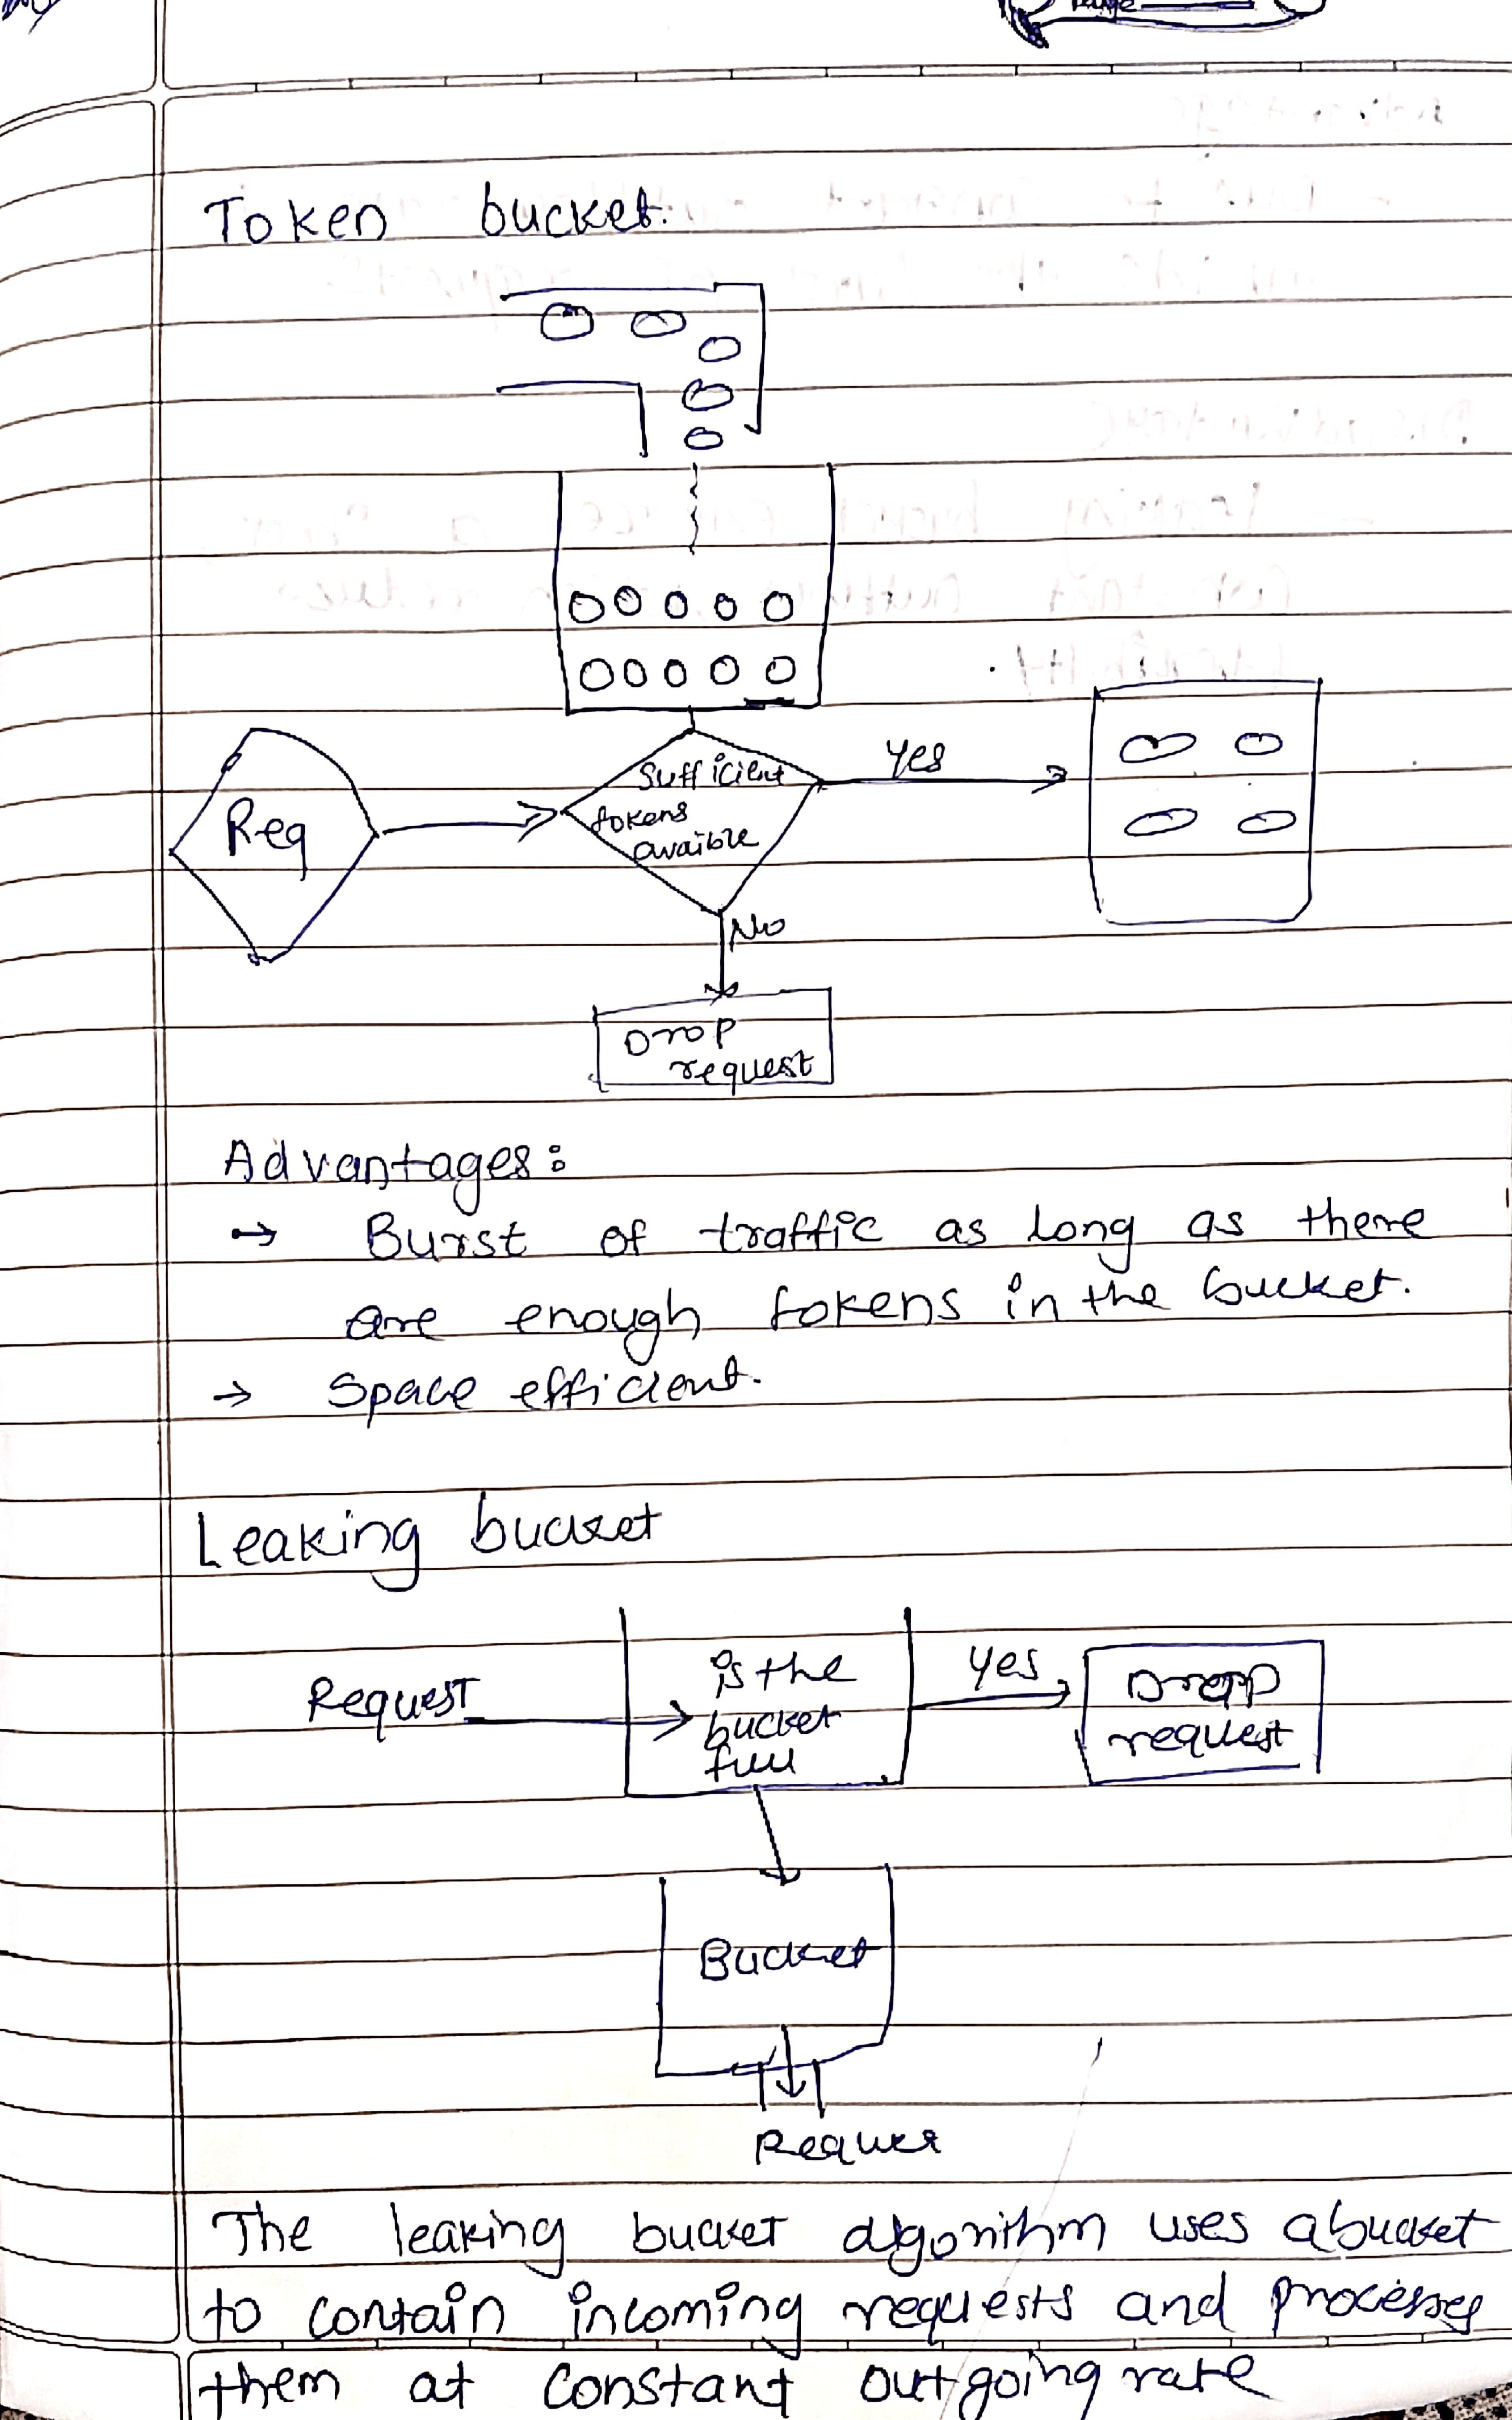 Token bucket.
Req
Sufficient
tokens
avaible
Yes
No
Drop
request
Advantages:
→ Burst of traffic as long as there
are enough tokens in the bucket.
→ Space efficient.
Leaking bucket
Request
is the
bucket
full
Yes
Drop
request
Bucket
The leaking bucket algorithm uses a bucket
to contain incoming requests and processes
them at constant outgoing rate